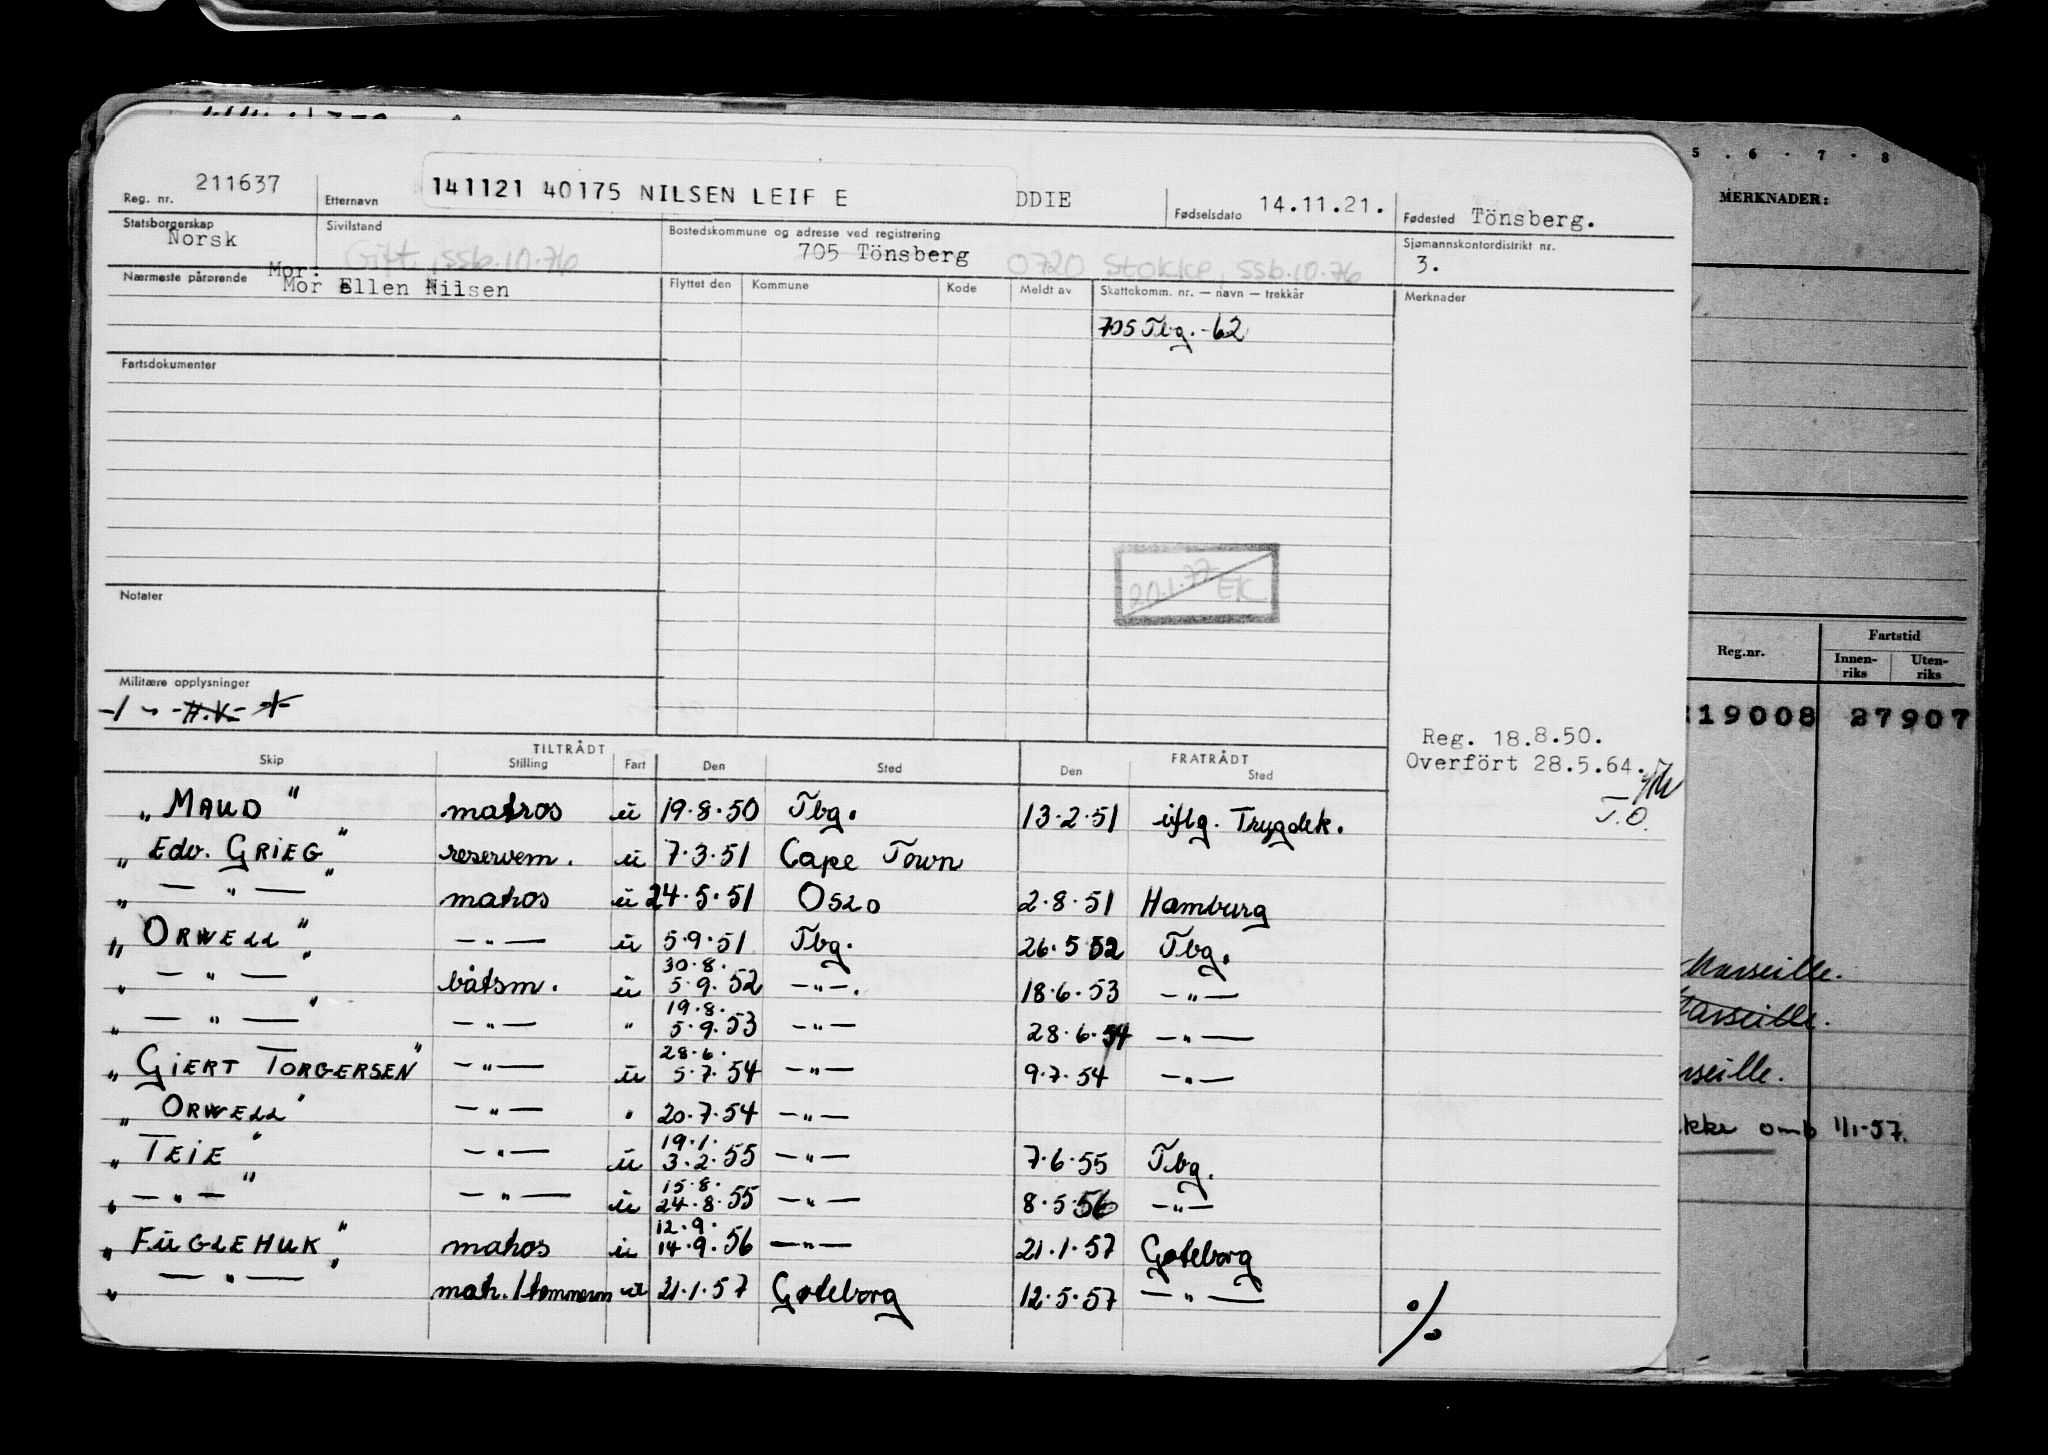 Reg. nr. 211637 Etternavn 141121 40175 NILSEN LEIF E DDIE Fødselsdato 14.11.21. Fødested Tönsberg.
Statsborgerskap Norsk Sivilstand Gift, ssb.10.76 Bostedskommune og adresse ved registrering 705 Tönsberg 0720 Stokke, ssb.10.76 Sjømannskontordistrikt nr. 3.
Nærmeste pårørende Mor: Mor Ellen Nilsen
Flyttet den Kommune Kode Meldt av Skattekomm. nr. — navn — trekkår Merknader
705 Tbg. -62
Fartsdokumenter
20.1.77 EK
Notater
Militære opplysninger
H.V.
Reg. 18.8.50.
Overfört 28.5.64.
T.O.
TILTRÅDT FRATRÅDT
Skip Stilling Fart Den Sted Den Sted
„ MAUD " matros u 19.8.50 Tbg. 13.2.51 iflg. Trygdek.
„ Edv. GRIEG " reservem. u 7.3.51 Cape Town
„ — " — " matros u 24.5.51 OSLO 2.8.51 Hamburg
„ ORWELL " — " — u 5.9.51 Tbg. 26.5 52 Tbg.
„ — " — " båtsm. u 30.8. 5.9.52 — " —. 18.6.53 — " —
„ — " — " — " — " 19.8. 5.9.53 — " — 28.6.54 — " —
„ GIERT TORGERSEN " — " — u 28.6. 5.7.54 — " — 9.7.54 — " —
„ ORWELL " — " — " 20.7.54 — " —
„ TEIE " — " — u 19.1. 3.2.55 — " — 7.6.55 Tbg.
„ — " — " — " — u 15.8. 24.8.55 — " — 8.5.56 — " —
„ FUGLEHUK " matros u 12.9. 14.9.56 — " — 21.1.57 Gøteborg
„ — " — " matr./tømmerm u 21.1.57 Gøteborg 12.5.57 — " —
%
5 . 6 . 7 . 8
MERKNADER:
Reg.nr. Fartstid
Innen-riks Uten-riks
19008 27907
Marseille.
Marseille.
rseille.
kke omb 1/1-57.